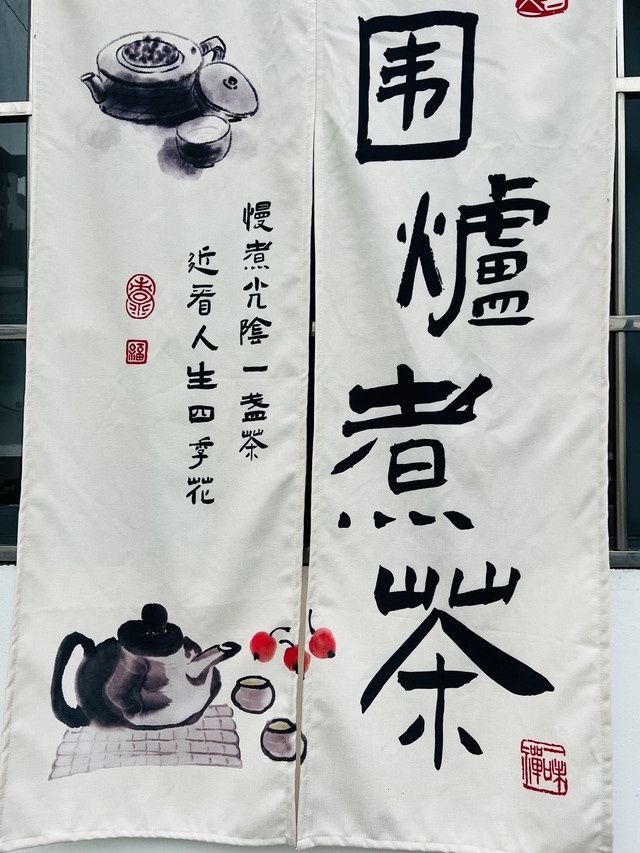 围爐煮茶
慢煮光陰一盏茶
近看人生四季花
福
一味禪